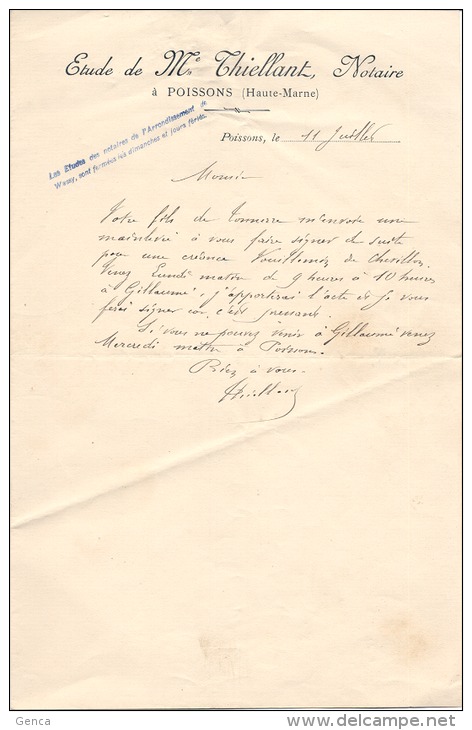 Etude de Mᵉ Thiellant, Notaire
à POISSONS (Haute-Marne)
Les Etudes des notaires de l'Arrondissement de
Wassy, sont fermées les dimanches et jours fériés.
Poissons, le 11 Juillet
Monsieur
Votre fils de Tonnerre m'envoie une
mainlevée à vous faire signer de suite
pour une créance Vouillemin de Chevillon.
Venez Lundi matin de 9 heures à 10 heures
à Gillaumé. j'apporterai l'acte et je vous
ferai signer car c'est pressant.
Si vous ne pouvez venir à Gillaumé venez
Mercredi matin à Poissons.
Bien à vous.
Thiellant
Genca
www.delcampe.net